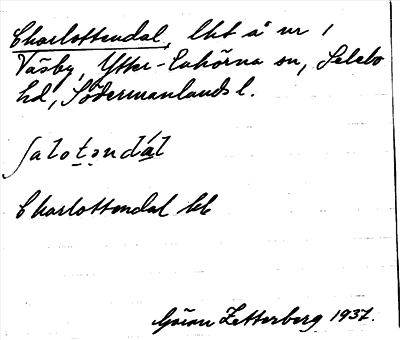 Charlottendal, lht å nr 1
Väsby, Ytter-Enhörna sn, Selebo
hd, Södermanlands l.
ʃalotəndál
Charlottendal kk
Göran Zetterberg 1937.